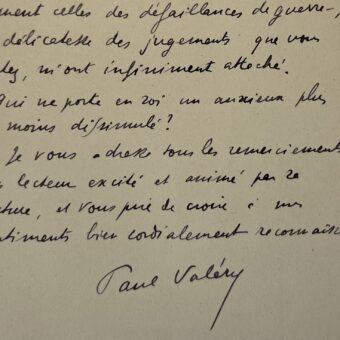 ment celles des défaillances de guerre-,
délicatesse des jugements que vous
tez, m'ont infiniment attaché.
Qui ne porte en soi un anxieux plus
moins dissimulé?
Je vous adresse tous les remerciements
lecteur excité et animé par sa
cture, et vous prie de croire à mes
ntiments bien cordialement reconnaiss
Paul Valéry